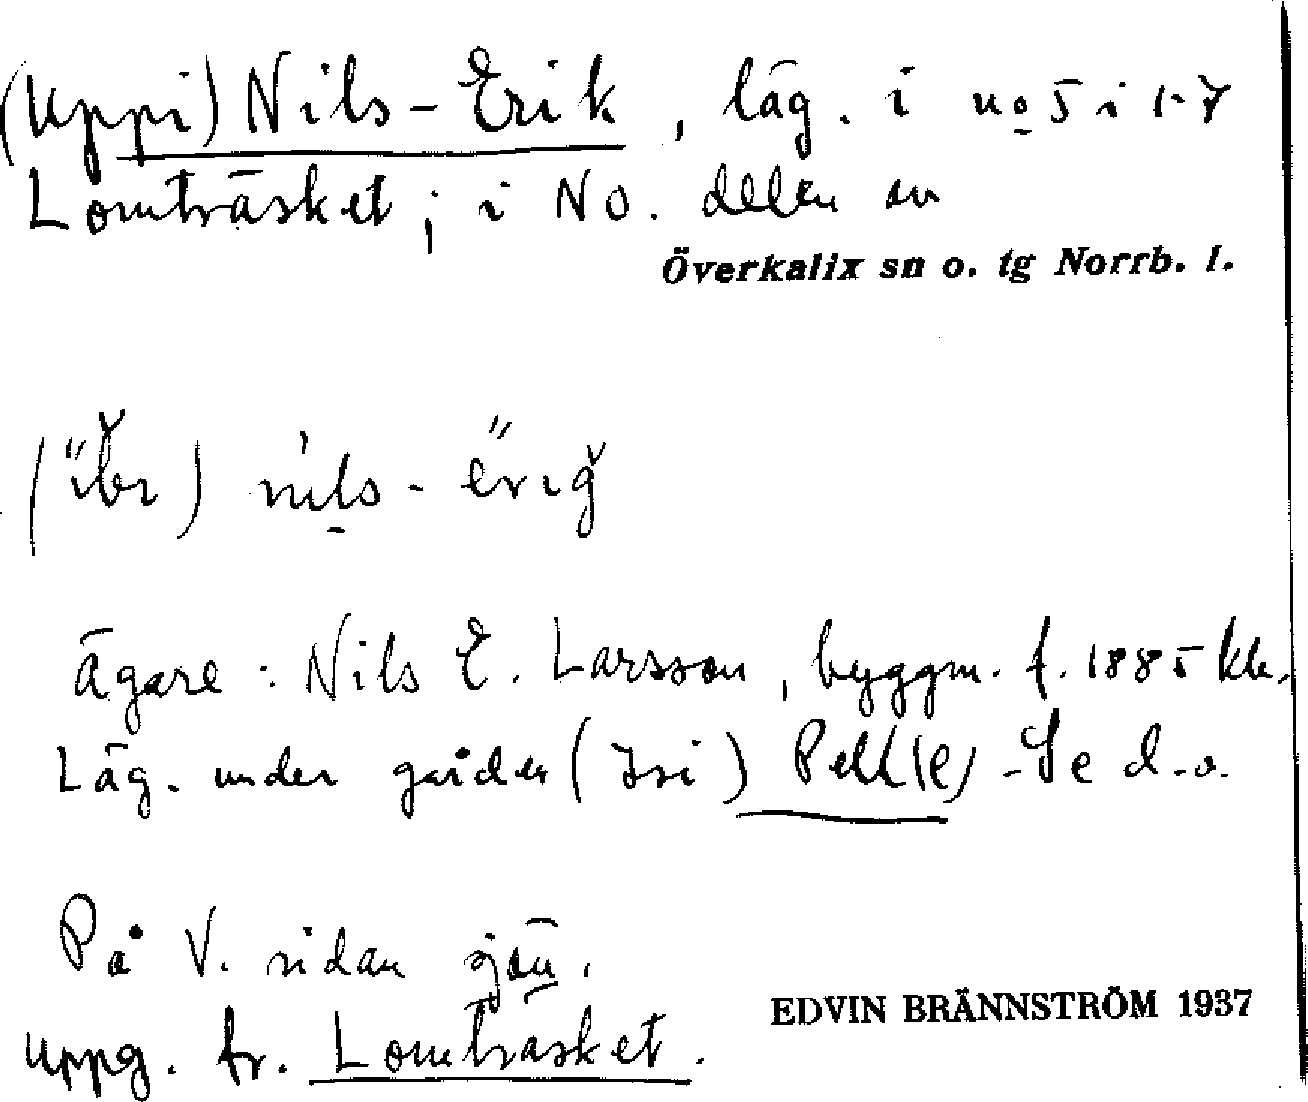 (Uppi) Nils-Erik, läg. i no 5 i 1-7
Lomträsket; i NO. delen av
Överkalix sn o. tg Norrb. l.
nils-
ägare: Nils E. Larsson, byggm. f. 1885
Läg. under gården (Isi) Pell(e)-Se d.o.
På V. sidan sjön.
uppg. fr. Lomträsket.
EDVIN BRÄNNSTRÖM 1937